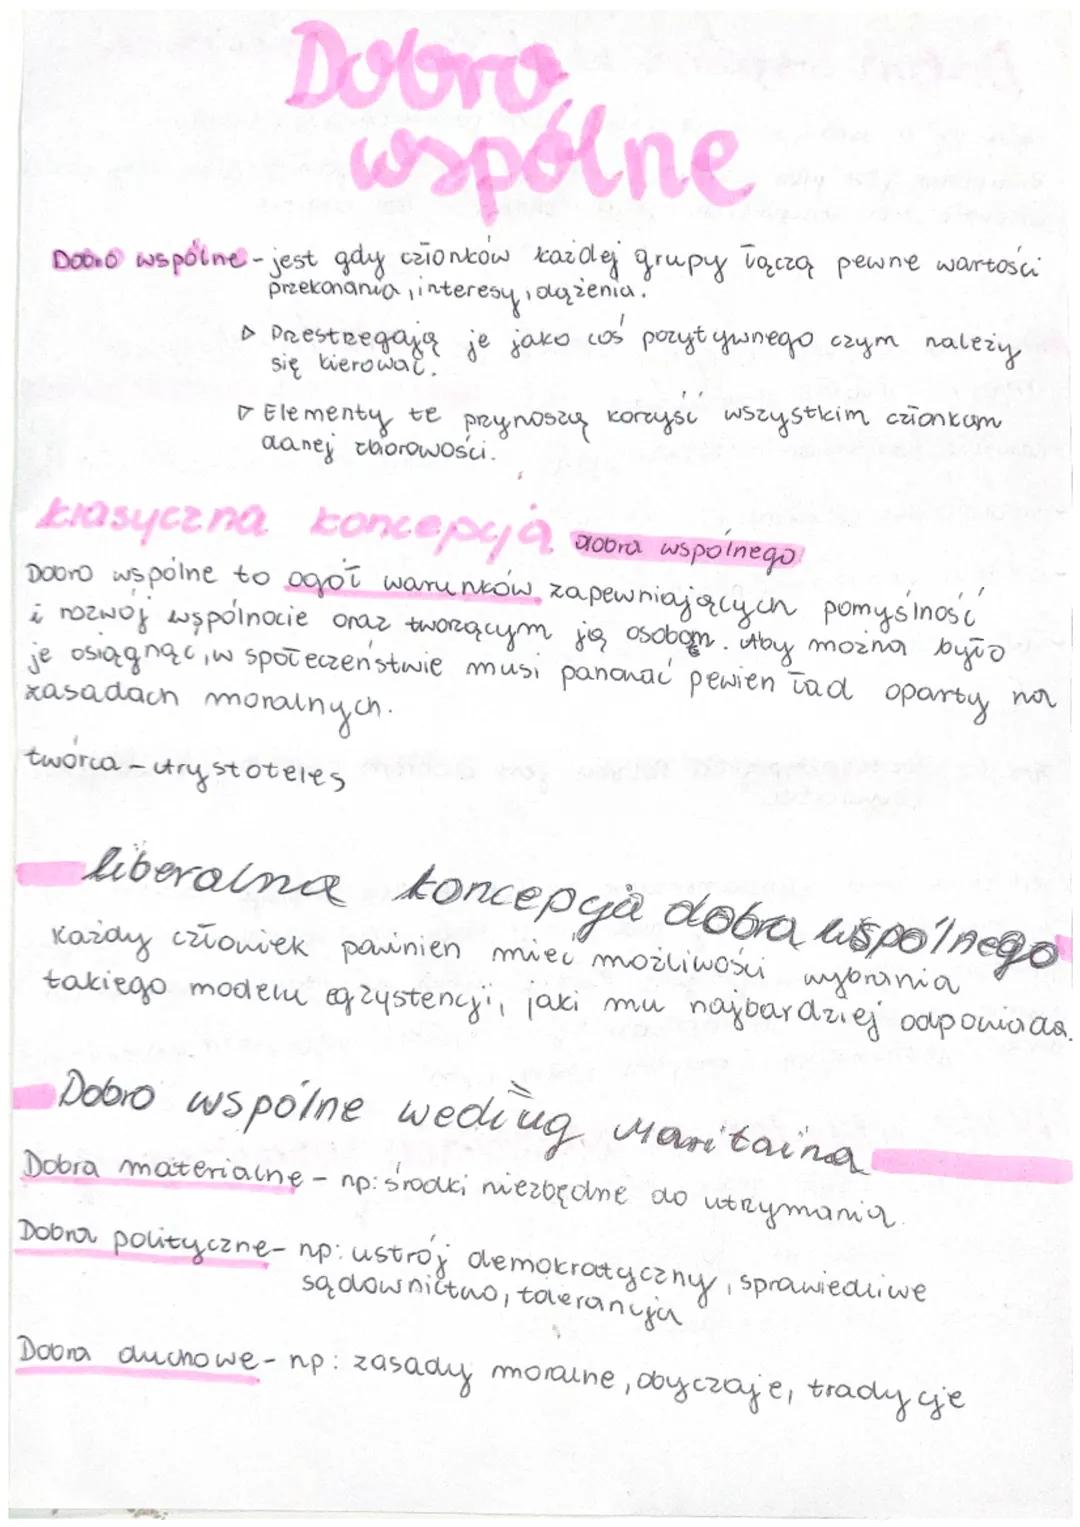 Dobro
wspólne
Dobro wspólne - jest gdy członków każdej grupy łączą pewne wartości
przekonania, interesy, dążenia.
▷ Przestrzegają je jako coś pozytywnego czym należy
się kierować.
▷ Elementy te przynoszą korzyść wszystkim członkom
danej zbiorowości.
klasyczna koncepcja dobra wspólnego
Dobro wspólne to ogół warunków zapewniających pomyślność
i rozwój wspólnocie oraz tworzącym ją osobom. Aby można było
je osiągnąć, w społeczeństwie musi panować pewien ład oparty na
zasadach moralnych.
twórca - Arystoteles
liberalna koncepcja dobra wspólnego
Każdy człowiek powinien mieć możliwości wybrania
takiego modelu egzystencji, jaki mu najbardziej odpowiada.
Dobro wspólne według Maritaina
Dobra materialne - np: środki niezbędne do utrzymania.
Dobra polityczne - np: ustrój demokratyczny, sprawiedliwe
sądownictwo, tolerancja
Dobra duchowe - np: zasady moralne, obyczaje, tradycje